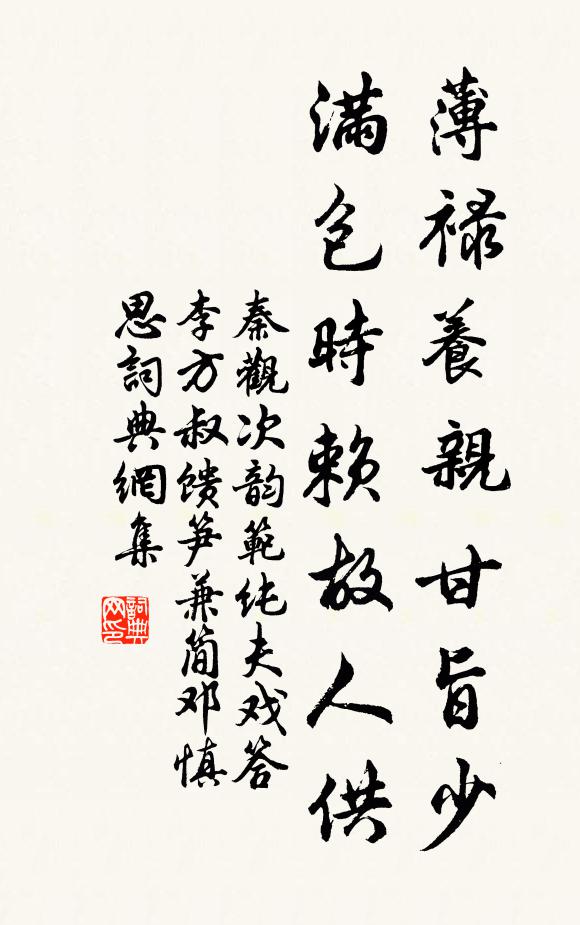 薄禄養親甘旨少
满包時赖故人供
秦觀次韵範纯夫戏答
李方叔馈笋兼简邓慎
思詞典網集
詞典网印